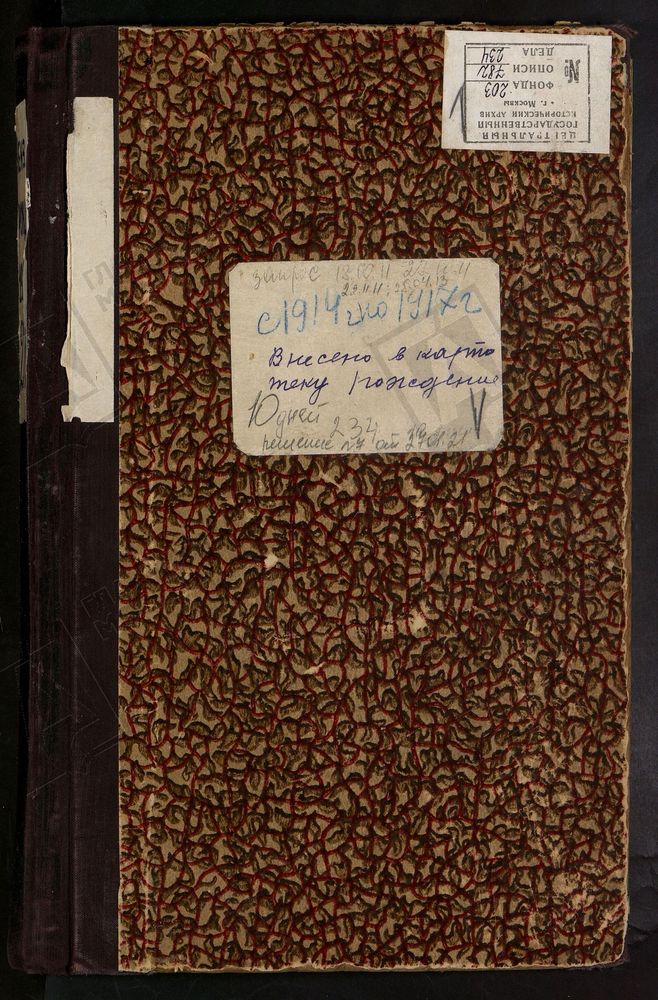 ЦЕНТРАЛЬНЫЙ
ГОСУДАРСТВЕННЫЙ
ИСТОРИЧЕСКИЙ АРХИВ
• г. Москвы
ФОНДА 203
№ ОПИСИ 782
ДЕЛА 234
запрос
с 1914 г по 1917 г
Внесено в карто
теку рождение
10 дней
234
решение от
V